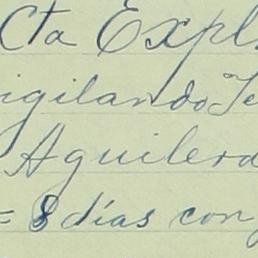 Cta Expl
igilando Te
Aguilera
= 8 días con